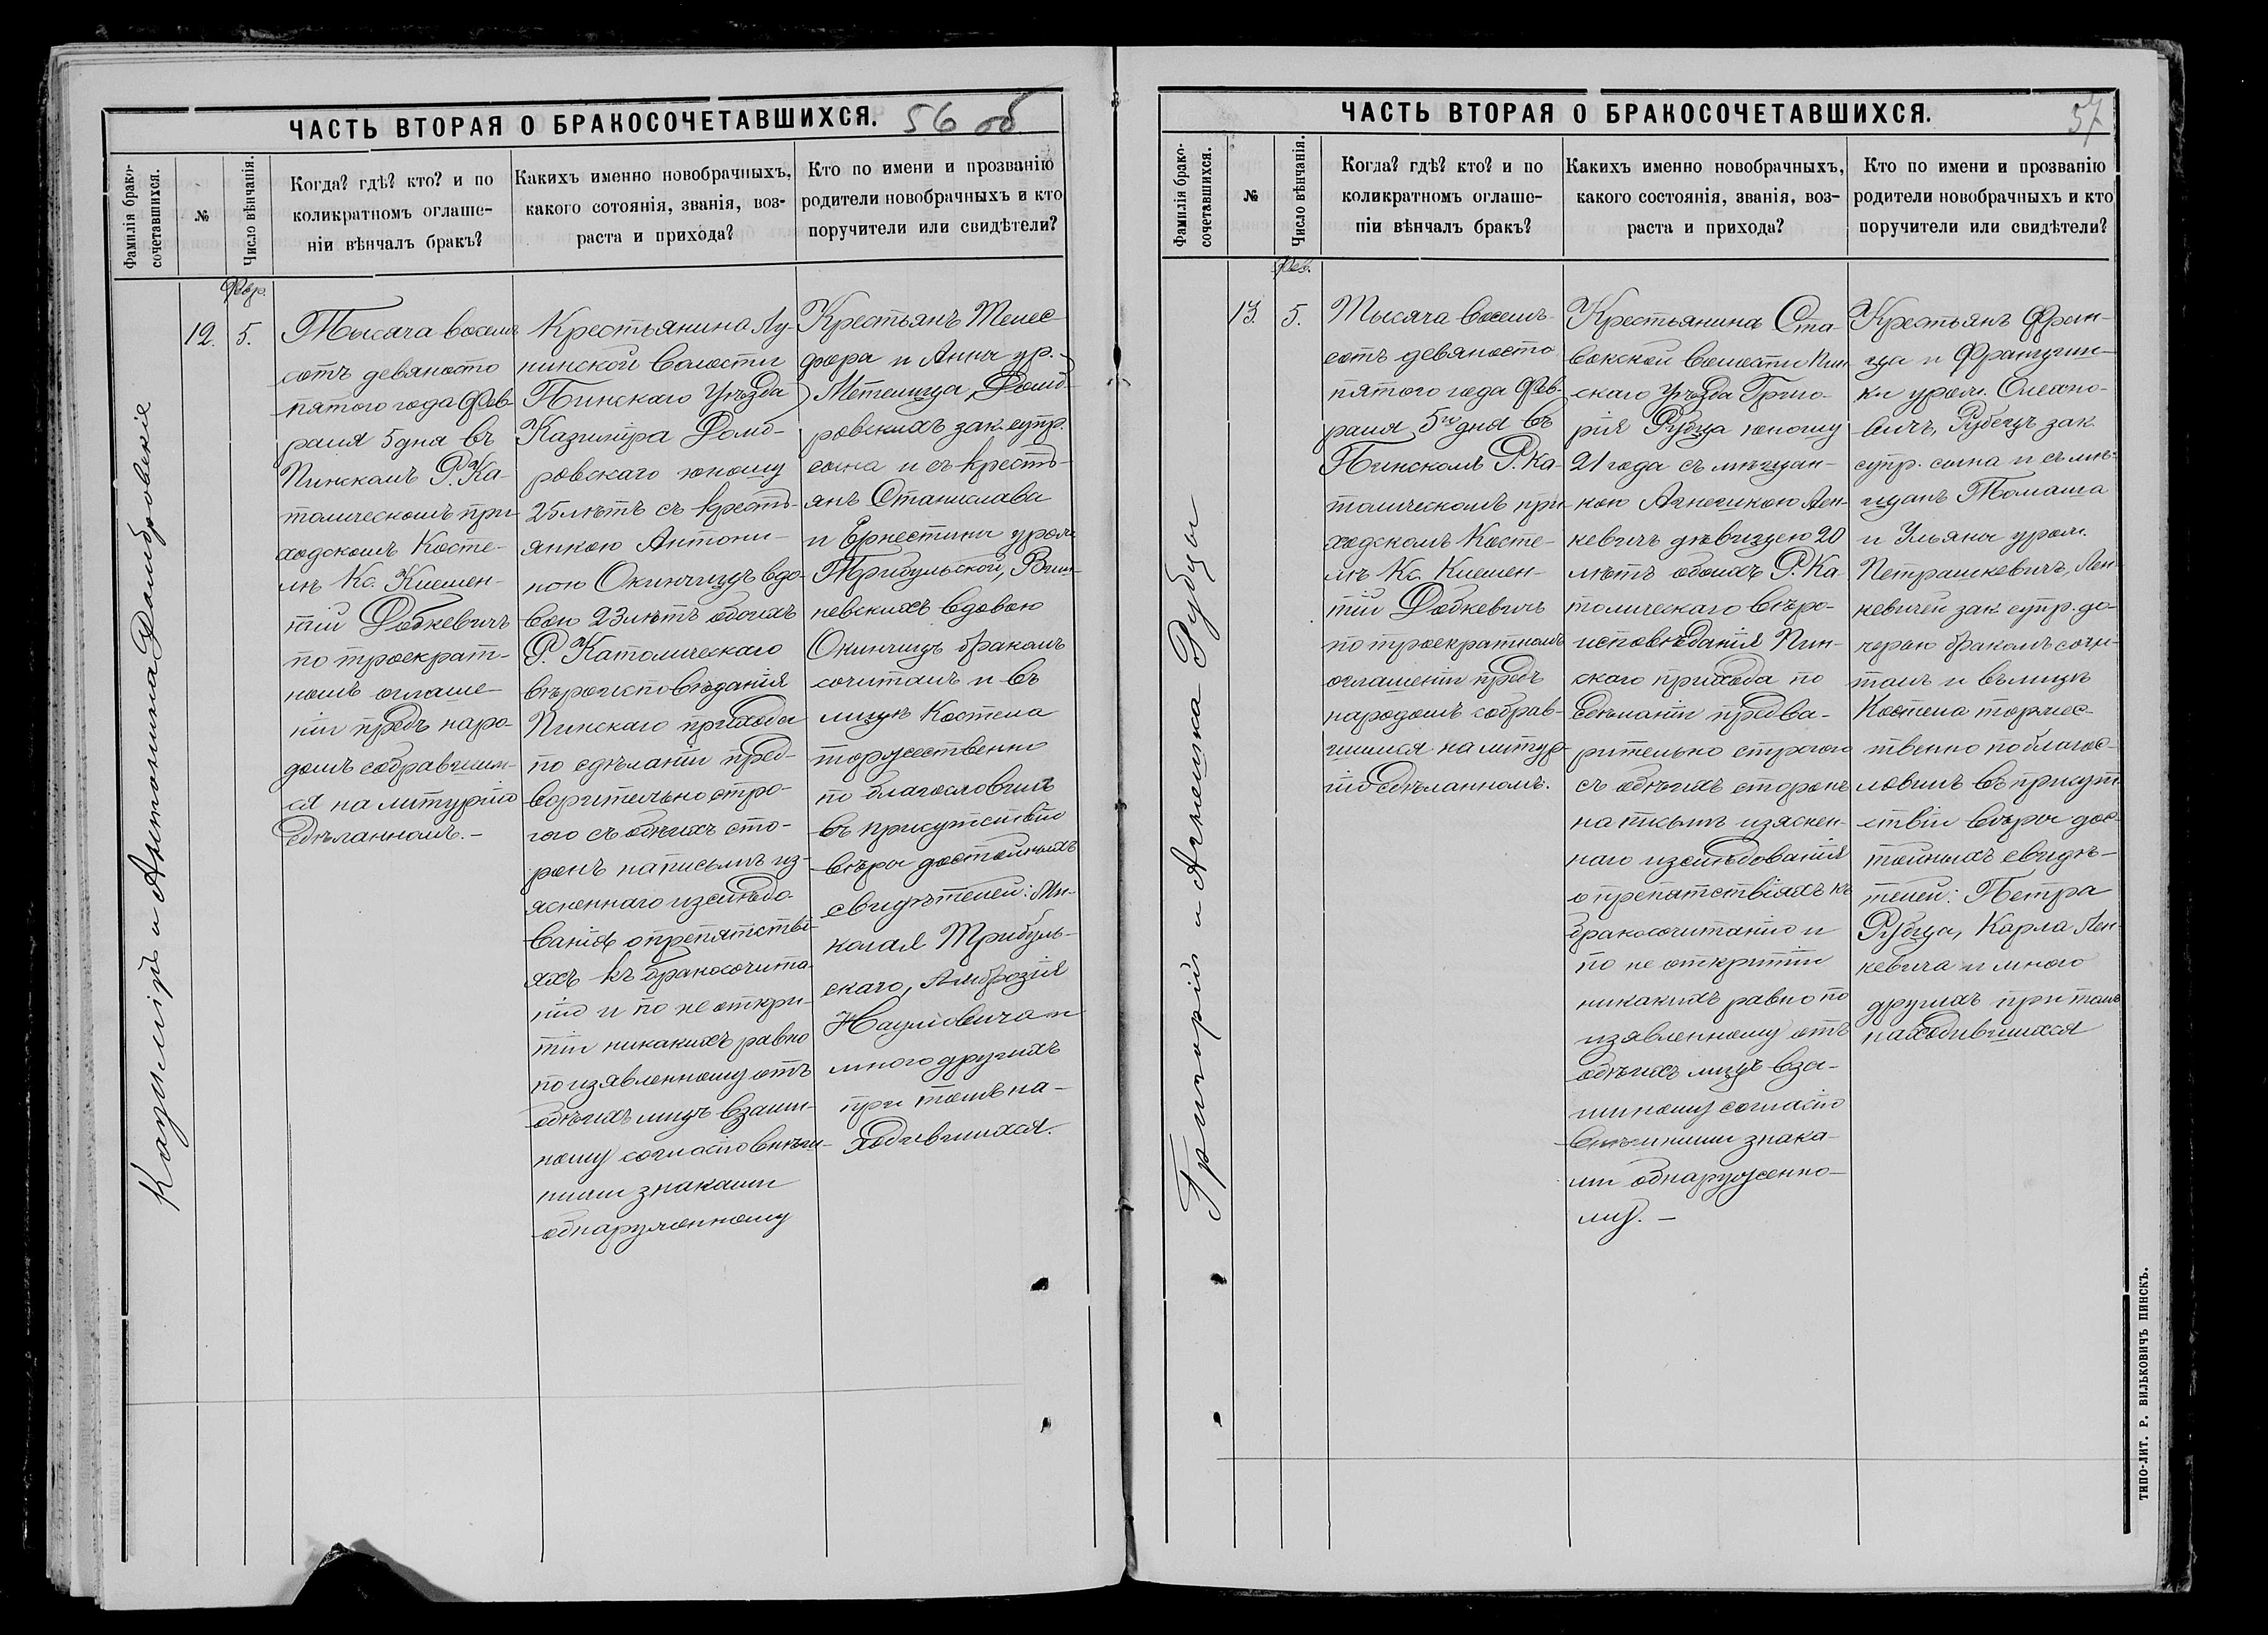 ЧАСТЬ ВТОРАЯ О БРАКОСОЧЕТАВШИХСЯ. 56 об
Фамилія брако-
сочетавшихся.
№
Число вѣнчанія.
Когда? гдѣ? кто? и по
коликратномъ оглаше-
ніи вѣнчалъ бракъ?
Какихъ именно новобрачныхъ,
какого сотоянія, званія, воз-
раста и прихода?
Кто по имени и прозванію
родители новобрачныхъ и кто
поручители или свидѣтели?
Казиміръ и Антонина Домбровскіе
Февр.
12.
5.
Тысяча восемь
сотъ девяносто
пятого года Фев-
раля 5 дня въ
Пинскомъ Р. Ка-
толическомъ при-
ходскомъ Косте-
лѣ Кс. Клемен-
тій Добкевичъ
по троекрат-
номъ оглаше-
ніи предъ наро-
домъ собравшим-
ся на литургію
сдѣланномъ. -
Крестьянина Лу-
нинской волости
Пинскаго Уѣзда
Казиміра Домб-
ровскаго юношу
25 лѣтъ съ кресть-
янкою Антони-
ною Окинчицъ вдо-
вою 23 лѣтъ обоихъ
Р. Католическаго
вѣроисповѣданія
Пинскаго прихода
по сдѣланіи пред-
варительно стро-
гого съ обѣихъ сто-
ронъ на письмѣ из-
ясненнаго изслѣдо-
ванія о препятстві-
яхъ къ бракосочита-
нію и по не откри-
тіи никакихъ равно
по изявленному отъ
обѣихъ лицъ взаим-
ному согласію внѣш-
ними знаками
обнаруженному
Крестьянъ Телес-
фора и Анны ур.
Метелица, Домб-
ровскихъ зак. супр.
сына и съ кресть-
янъ Станислава
и Ернестины урож.
Трибульской,
невскихъ вдовою
Окинчицъ бракомъ
сочиталъ и въ
лицѣ Костела
торжественно
по благословилъ
въ присутствіи
вѣры достойныхъ
свидѣтелей: Ми-
колая Трибуль-
скаго, Амброзія
Наумовича и
много другихъ
при томъ на-
ходившихся.
ЧАСТЬ ВТОРАЯ О БРАКОСОЧЕТАВШИХСЯ. 57
Фамилія брако-
сочетавшихся.
№
Число вѣнчанія.
Когда? гдѣ? кто? и по
коликратномъ оглаше-
ніи вѣнчалъ бракъ?
Какихъ именно новобрачныхъ,
какого состоянія, званія, воз-
раста и прихода?
Кто по имени и прозванію
родители новобрачныхъ и кто
поручители или свидѣтели?
Григорій и Агнешка Рубцы
Фев.
13.
5.
Тысяча восемь
сотъ девяносто
пятого года Фев-
раля 5го дня въ
Пинскомъ Р. Ка-
толическомъ при-
ходскомъ Косте-
лѣ Кс. Клемен-
тій Добкевичъ
по троекратномъ
оглашеніи предъ
народомъ собрав-
шимся на литур-
гію сдѣланномъ.
Крестьянина Ста-
вокской волости Пин-
скаго Уѣзда Григо-
рія Рубца юношу
21 года съ мѣщан-
кою Агнешкою Лен-
кевичъ дѣвицею 20
лѣтъ обоихъ Р. Ка-
толическаго вѣро-
исповѣданія Пин-
скаго прихода по
сдѣланіи предва-
рительно строгого
съ обѣихъ сторонъ
на письмѣ изяснен-
наго изслѣдованія
о препятствіяхъ къ
бракосочитанію и
по не откритіи
никакихъ равно по
изявленному отъ
обѣихъ лицъ вза-
имному согласію
внѣшними знака-
ми обнаруженно-
му. -
Крестьянъ Фран-
ца и Францишки
урож. Олехно-
вичъ, Рубецъ зак.
супр. сына и съ мѣ-
щанъ Томаша
и Ульяны урож.
Петрашкевичъ, Лен-
кевичей зак. супр. до-
черью бракомъ сочи-
талъ и въ лицѣ
Костела торжес-
твенно по благос-
ловилъ въ присут-
ствіи вѣры дос-
тойныхъ свидѣ-
телей: Петра
Рубца, Карла Лен-
кевича и много
другихъ при томъ
находившихся
ТИПО-ЛИТ. Р. ВИЛЬКОВИЧЪ ПИНСКЪ.